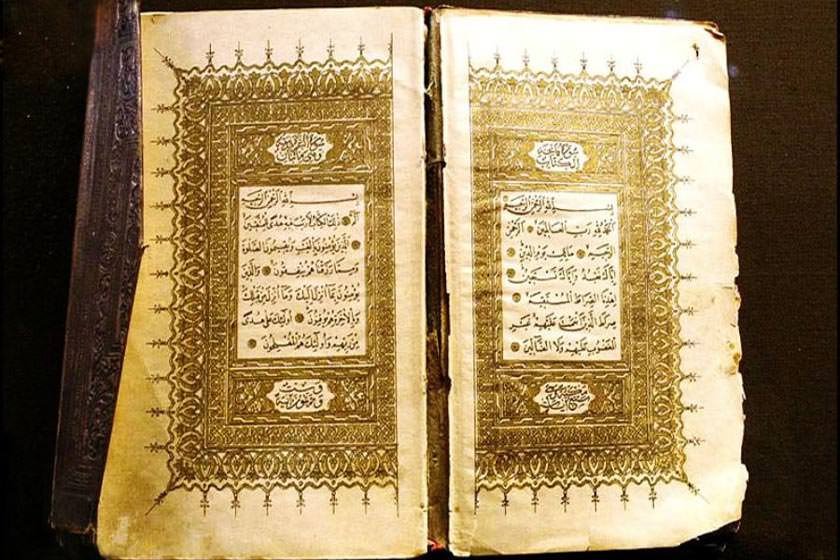 سورة فاتحة
الكتاب
بسم الله الرحمن الرحيم
الحمد لله رب العالمين ۝ الرحمن
الرحيم ۝ مالك يوم الدين ۝
اياك نعبد واياك نستعين ۝
اهدنا الصراط المستقيم ۝
صراط الذين انعمت عليهم غير
المغضوب عليهم ولا الضالين ۝
سورة البقرة
بسم الله الرحمن الرحيم
الم ۝ ذلك الكتاب لا ريب فيه هدى للمتقين
۝ الذين يؤمنون بالغيب ويقيمون الصلوة
ومما رزقناهم ينفقون ۝ والذين
يؤمنون بما انزل اليك وما انزل من قبلك
وبالآخرة هم يوقنون ۝ اولئك على هدى
من ربهم واولئك هم المفلحون ۝